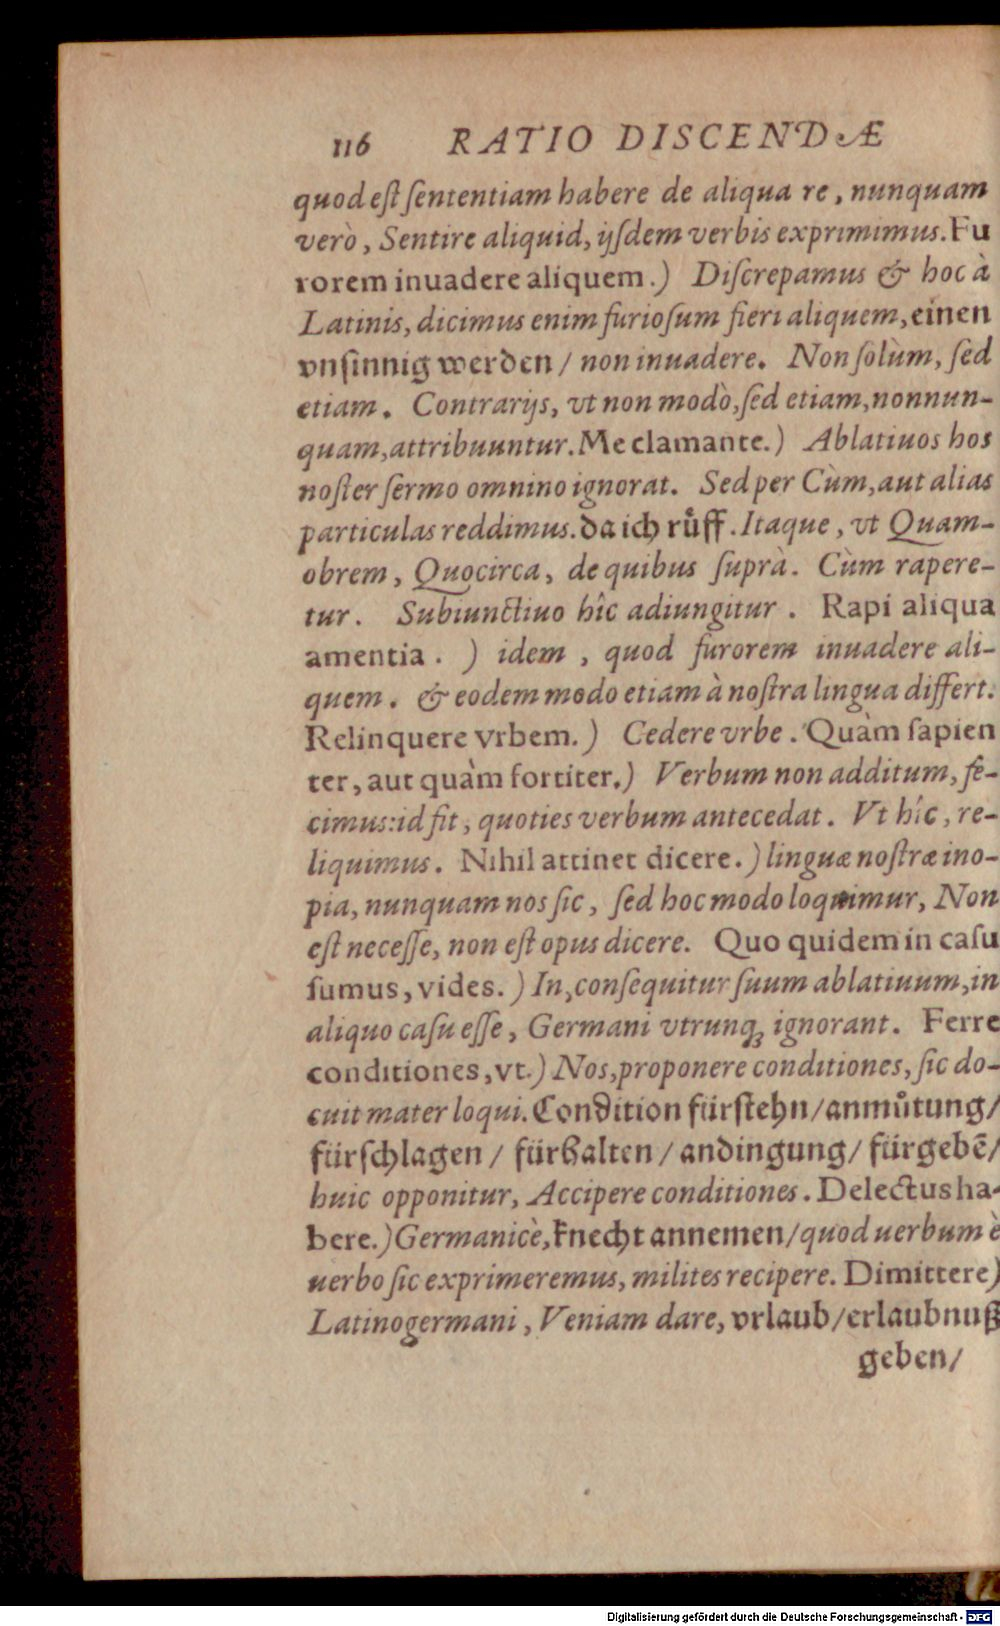 116 RATIO DISCENDÆ
quod eſt ſententiam habere de aliqua re, nunquam
verò, Sentire aliquid, ijſdem verbis exprimimus. Fu
rorem inuadere aliquem.) Diſcrepamus & hoc à
Latinis, dicimus enim furioſum fieri aliquem, einen
vnſinnig werden / non inuadere. Non ſolùm, ſed
etiam. Contrarijs, vt non modò, ſed etiam, nonnun-
quam, attribuuntur. Me clamante.) Ablatiuos hos
noſter ſermo omnino ignorat. Sed per Cùm, aut alias
particulas reddimus. da ich růff. Itaque, vt Quam-
obrem, Quocirca, de quibus ſuprà. Cùm rapere-
tur. Subiunctiuo hîc adiungitur. Rapi aliqua
amentia. ) idem, quod furorem inuadere ali-
quem. & eodem modo etiam à noſtra lingua differt.
Relinquere vrbem.) Cedere vrbe. Quàm ſapien
ter, aut quàm fortiter.) Verbum non additum, fe-
cimus: id fit, quoties verbum antecedat. Vt hîc, re-
liquimus. Nihil attinet dicere.) linguæ noſtræ ino-
pia, nunquam nos ſic, ſed hoc modo loquimur, Non
eſt neceſſe, non eſt opus dicere. Quo quidem in caſu
ſumus, vides.) In, conſequitur ſuum ablatiuum, in
aliquo caſu eſſe, Germani vtrunqꝫ ignorant. Ferre
conditiones, vt.) Nos, proponere conditiones, ſic do-
cuit mater loqui. Condition fürſtehn/anmůtung/
fürſchlagen / fürhalten / andingung/ fürgebē/
huic opponitur, Accipere conditiones. Delectus ha-
bere.) Germanicè, knecht annemen/quod uerbum è
uerbo ſic exprimeremus, milites recipere. Dimittere)
Latinogermani, Veniam dare, vrlaub/erlaubnuß
geben/
Digitalisierung gefördert durch die Deutsche Forschungsgemeinschaft - DFG